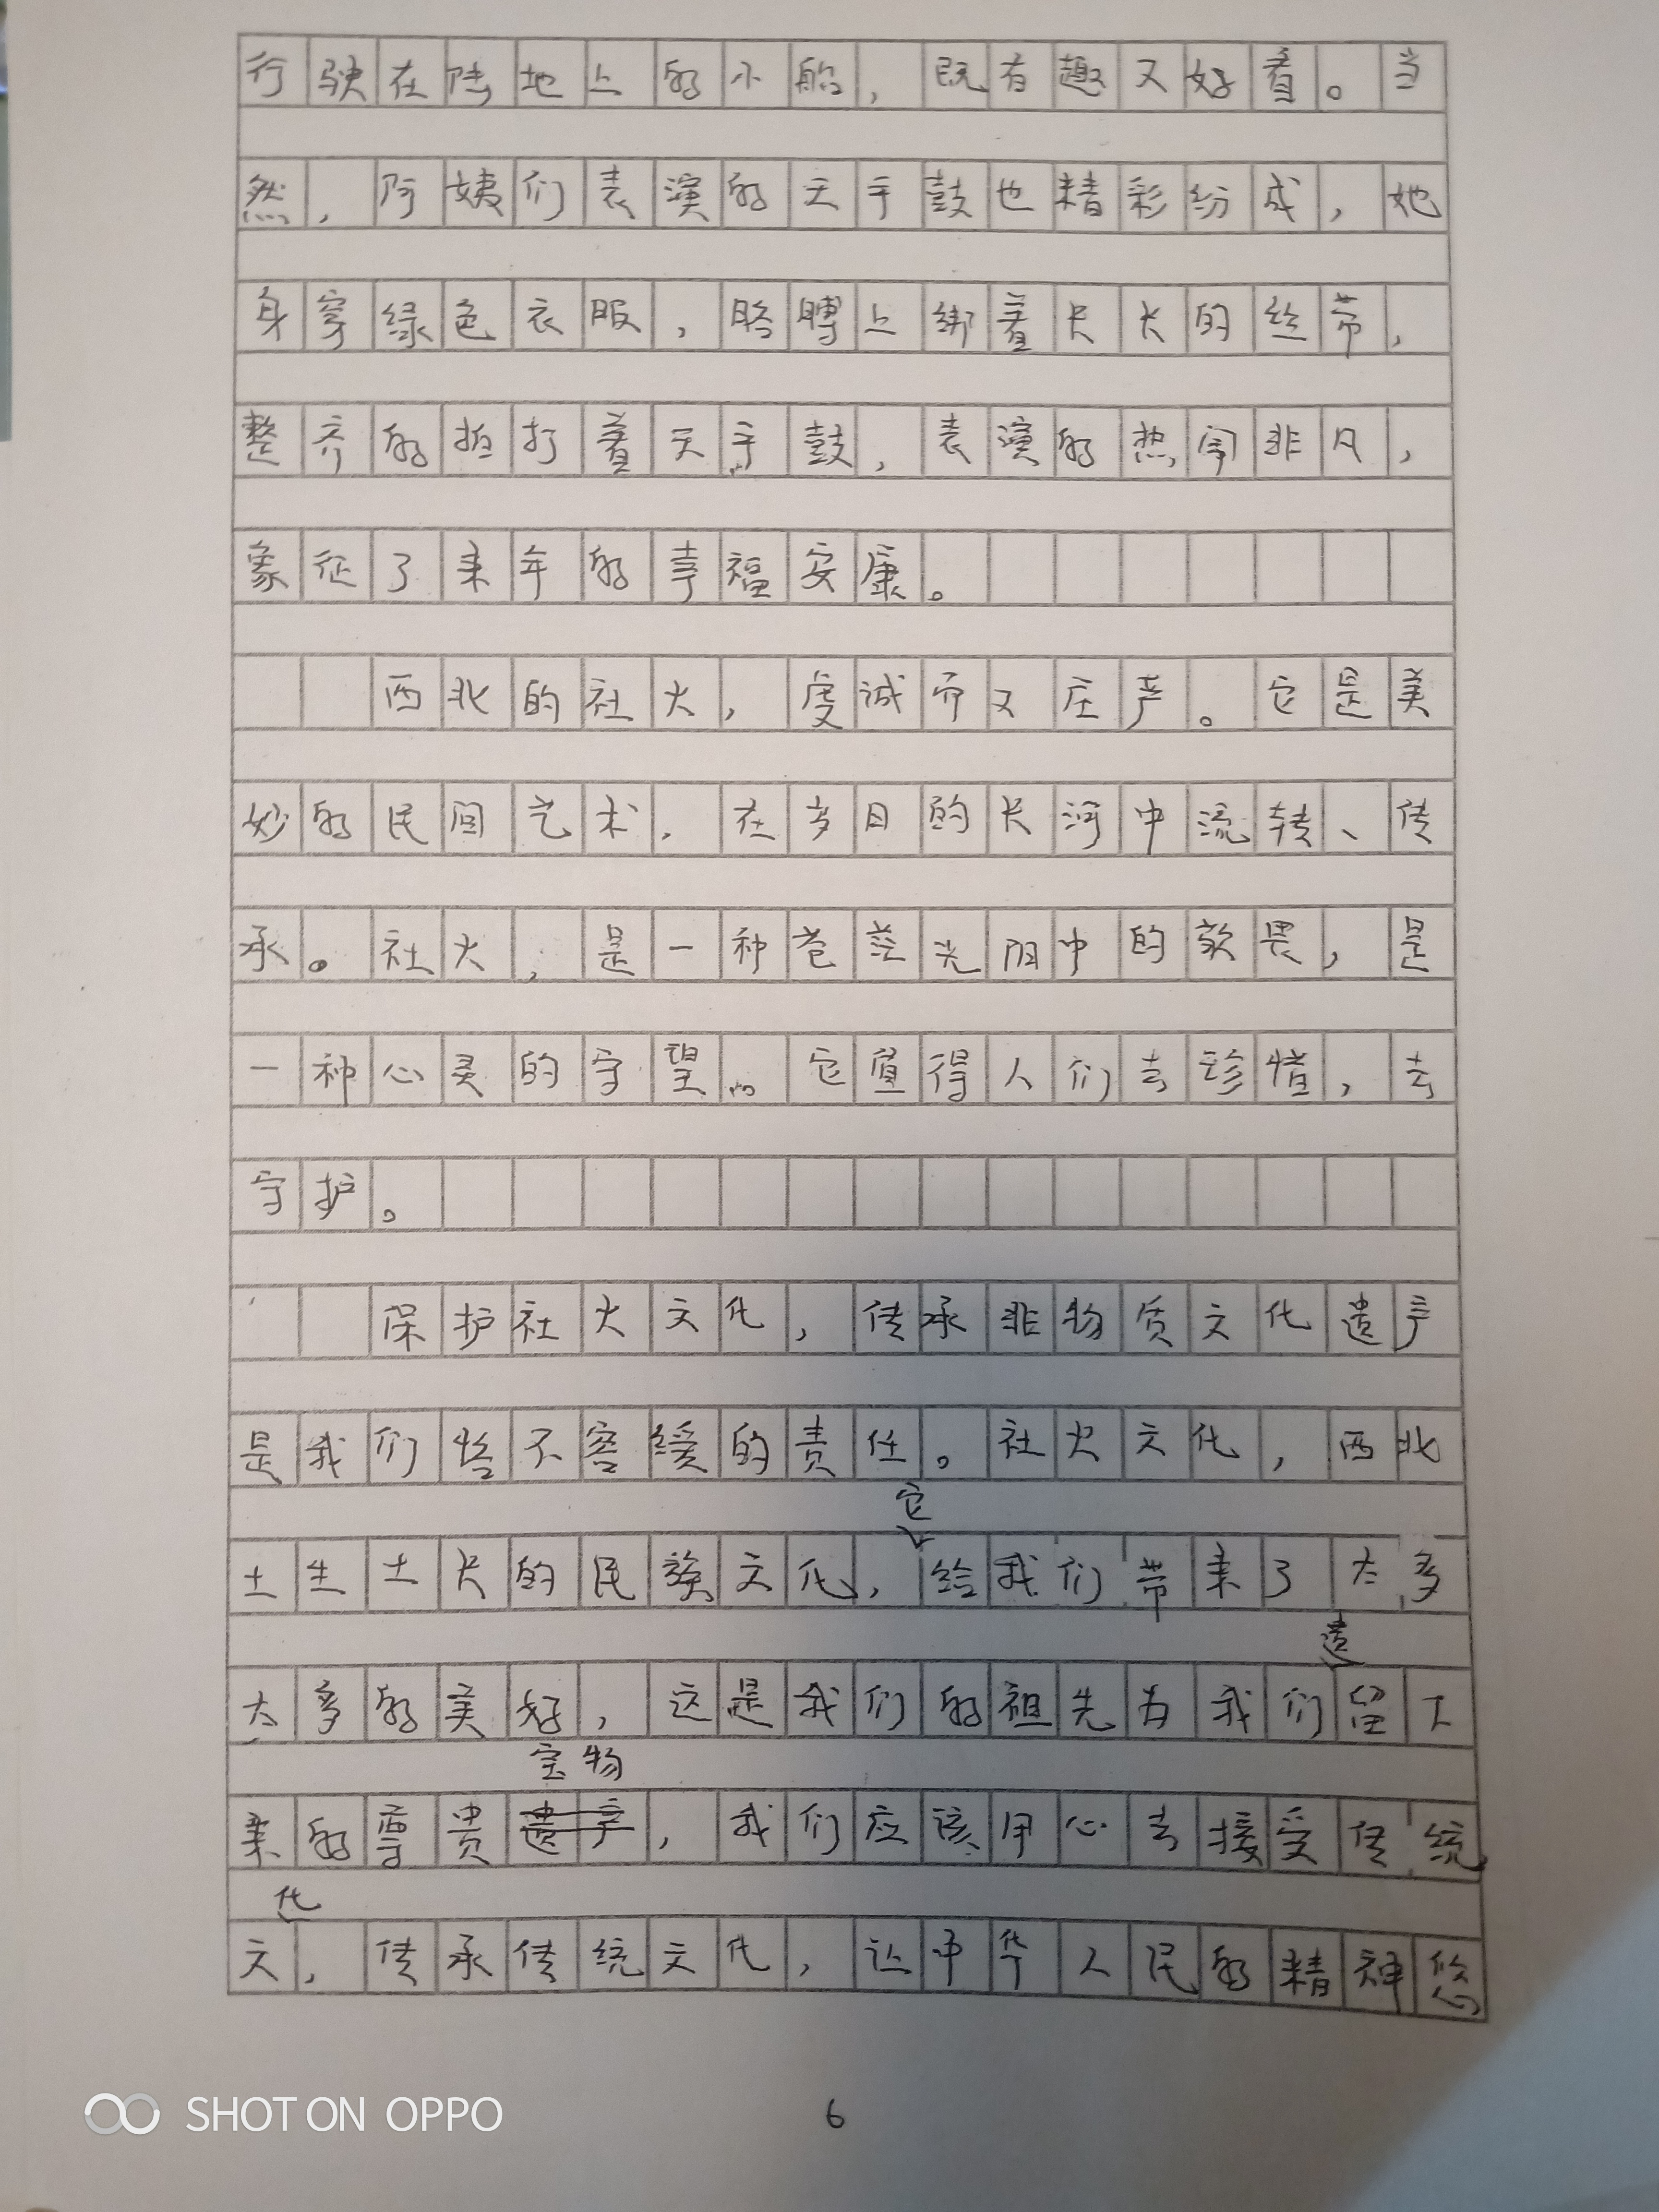 行驶在陆地上的小船，既有趣又好看。当
然，阿姨们表演的天手鼓也精彩纷成，她
身穿绿色衣服，胳膊上绑着长长的丝带，
整齐的拍打着天手鼓，表演的热闹非凡，
象征了来年的幸福安康。
西北的社火，虔诚而又庄严。它是美
妙的民间艺术，在岁月的长河中流转、传
承。社火，是一种苍茫光阴中的敬畏，是
一种心灵的守望。它值得人们去珍惜，去
守护。
保护社火文化，传承非物质文化遗产
是我们恪不容缓的责任。社火文化，西北
它
土生土长的民族文化，给我们带来了太多
遗
太多的美好，这是我们的祖先为我们留下
宝物
来的尊贵遗产，我们应该用心去接受传统
化
文，传承传统文化，让中华人民的精神悠
6
SHOT ON OPPO